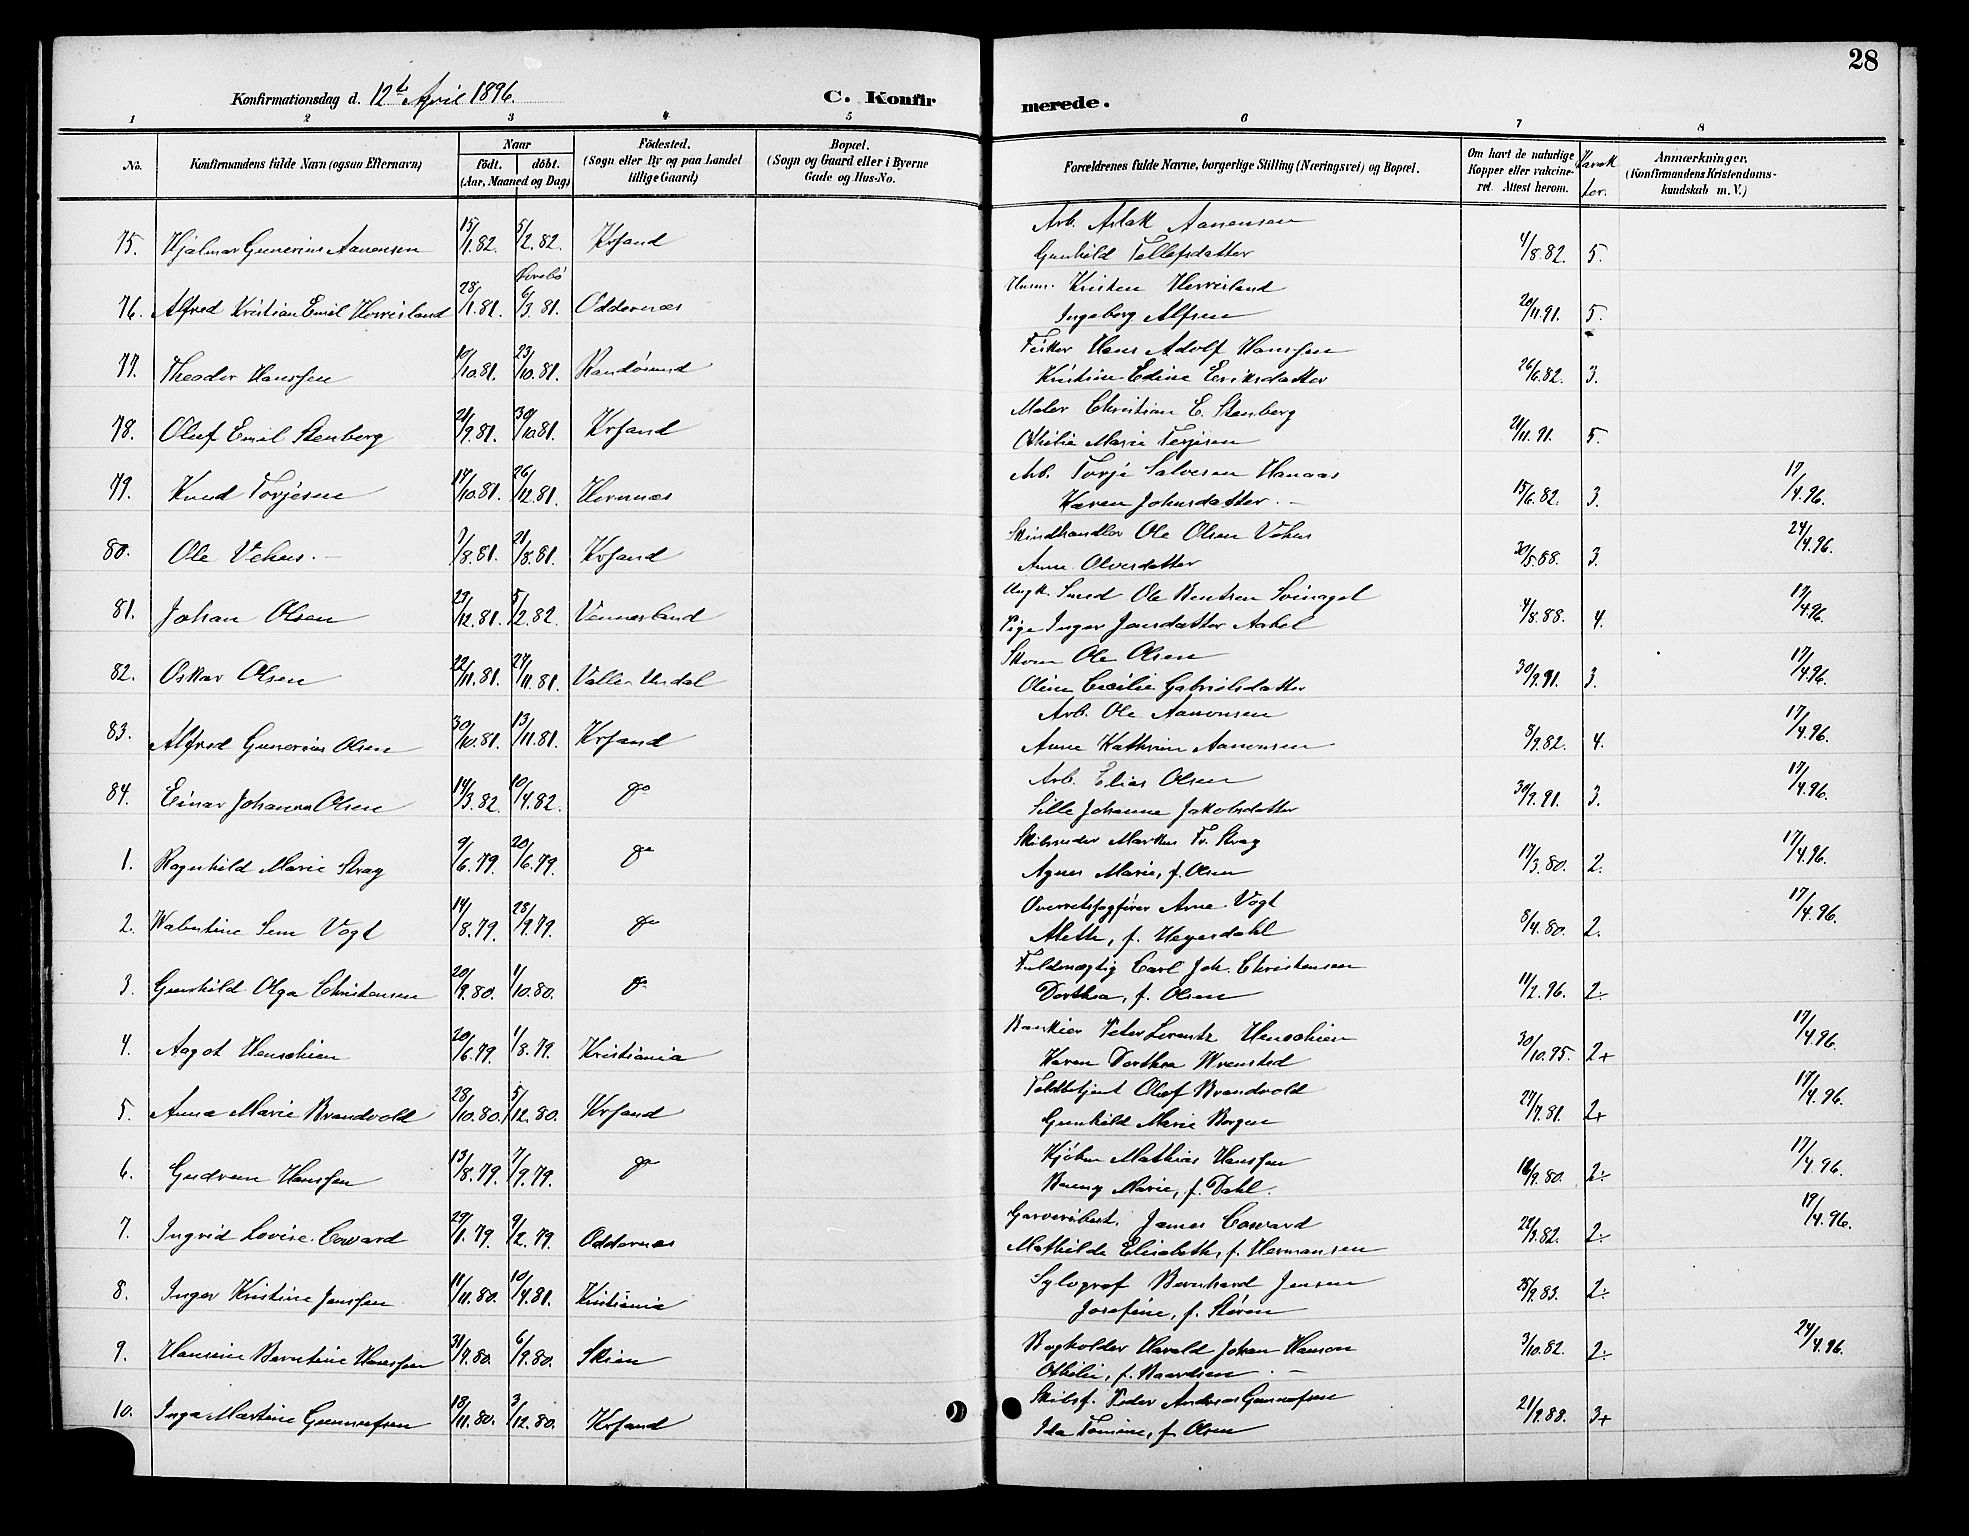 28
Konfirmationsdag d. 12te April 1896. C. Konfirmerede.
1 2 3 4 5 6 7 8
No. Konfirmandens fulde Navn (ogsaa Efternavn) Naar født. døbt. (Aar, Maaned og Dag) Fødested. (Sogn eller By og paa Landet tillige Gaard) Bopæl. (Sogn og Gaard eller i Byerne Gade og Hus-No. Forældrenes fulde Navne, borgerlige Stilling (Næringsvei) og Bopæl. Om havt de naturlige Kopper eller vakcineret. Attest herom. Karakter. Anmærkninger. (Konfirmandens Kristendomskundskab m. V.)
75. Hjalmar Gunerius Aanensen 15/1.82. 5/2.82. Krsand Arb. Aslak Aanensen
Gunhild Tellefsdatter 4/8.82. 5.
76. Alfred Kristian Emil Herrisland 28/1.81. 6/3.81. Oddernæs Husm. Kristen Herrisland
Ingeborg Alfsen 20/11.91. 5.
77. Theodor Hanssen 10/10.81. 23/10.81. Randøsund Fisker Hans Adolf Hanssen
Kristine Edine Eriksdatter 26/6.82. 3.
78. Oluf Emil Stenberg 21/9.81. 30/10.81. Krsand Maler Christian E. Stenberg
Othilie Marie Terjesen 21/11.91. 5.
79. Knud Torjesen 14/10.81. 26/12.81. Hornnæs Arb. Torje Salvesen Hanaas
Karen Johnsdatter. 15/6.82. 3. 17/4.96.
80. Ole Vehus. 7/8.81. 21/8.81. Krsand Skindhandler Ole Olsen Vehus
Anne Olversdatter 30/5.88. 3. 24/4.96.
81. Johan Olsen 23/12.81. 5/2.82. Vennesland Ungk. Smed Ole Bentsen Svinagel
Pige Inger Jonsdatter Aabel 4/8.88. 4. 17/4.96.
82. Oskar Olsen 22/11.81. 27/11.81. Valle-Undal Skom. Ole Olsen
Oline Cecilie Gabrielsdatter 30/9.91. 3. 17/4.96.
83. Alfred Gunerius Olsen 30/10.81. 13/11.81. Krsand Arb. Ole Aanonsen
Anne Kathrine Aanonsen 8/9.82. 4. 17/4.96.
84. Einar Johannes Olsen 14/3.82. 10/4.82. do Arb. Elias Olsen
Sille Johanne Jakobsdatter 30/9.91. 3. 17/4.96.
1. Ragnhild Marie Stray 9/6.79. 20/6.79. do Skibsreder Markus Fr. Stray
Agnes Marie, f. Olsen 17/3.80. 2. 17/4.96.
2. Walentine Sem Vogt 14/8.79. 28/9.79. do Overretssagfører Arne Vogt
Alethe, f. Heyerdahl 8/4.80. 2. 17/4.96.
3. Gunhild Olga Christensen 20/9.80. 1/10.80. do Fuldmægtig Carl Joh. Christensen
Dorthea, f. Olsen 11/2.96. 2÷
4. Aagot Henschien 20/6.79. 1/8.79. Kristiania Bankier Peter Lorentz Henschien
Karen Dorthea Wrensted 30/10.95. 2+ 17/4.96.
5. Anna Marie Brandvold 28/10.80. 5/12.80. Krsand Toldbetjent Olaf Brandvold
Gunhild Marie Borgen 27/7.81. 2+ 17/4.96.
6. Gudrun Hanssen 13/8.79. 7/9.79. do Kjøbm. Mathias Hanssen
Benny Marie, f. Dahl. 16/9.80. 2÷ 17/4.96.
7. Ingrid Lovise Coward 29/1.79. 9/2.79. Oddernæs Garveribest. James Coward
Mathilde Elisabeth, f. Hermansen 22/3.82. 2÷ 19/4.96.
8. Inger Kristine Jenssen 11/11.80. 10/4.81. Kristiania Xylograf Bernhard Jensen
Josefine, f. Støren 25/9.83. 2÷
9. Hansine Berntine Hanssen 31/7.80. 6/9.80. Skien Bogholder Harald Johan Hanson
Othilie, f. Baardsen 3/10.82. 2÷ 24/4.96.
10. Inga Martine Gunnufsen 18/11.80. 3/12.80. Krsand Skibsf. Peder Andreas Gunnufsen
Ida Tomine, f. Olsen 21/9.88. 3+